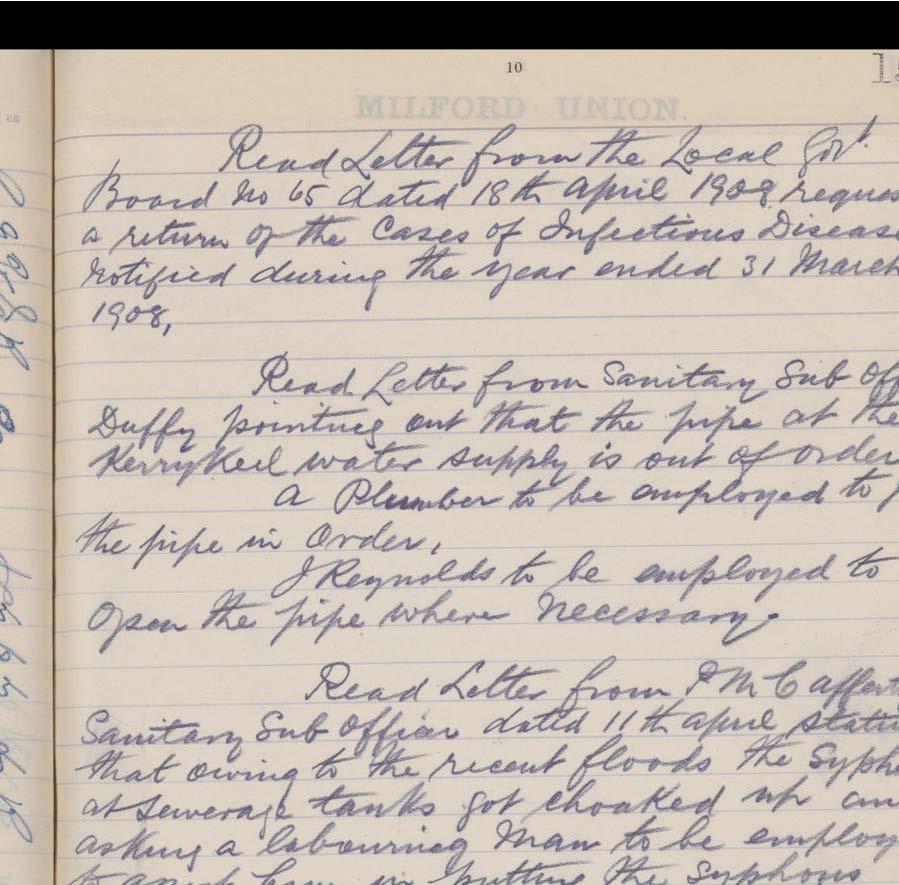 10
15
MILFORD UNION.
88
Read Letter from the Local Govt.
Board No 65 dated 18th April 1908 reques
a return of the Cases of Infectious Disease
notified during the year ended 31 March
1908,
Read Letter from Sanitary Sub Off
Duffy pointing out that the pipe at the
KerryKeel water supply is out of order
a Plumber to be employed to p
the pipe in Order,
J Reynolds to be employed to
Open the pipe where necessary.
Read Letter from P McCaffert
Sanitary Sub Officer dated 11th April stati
that owing to the recent floods the Sypho
at Sewerage tanks got choaked up an
asking a labouring Man to be employ
in putting the syphons